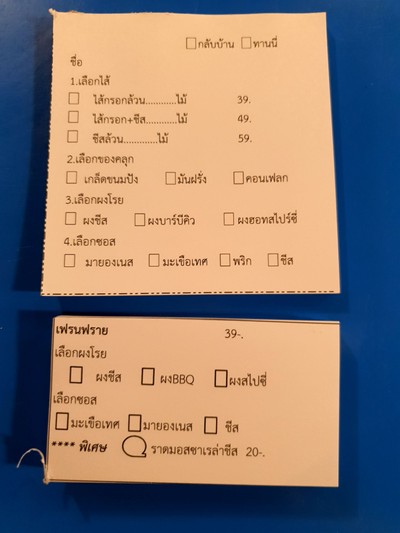 กลับบ้าน ทานนี่
ชื่อ
1.เลือกไส้
ไส้กรอกล้วน............ไม้ 39.
ไส้กรอก+ชีส............ไม้ 49.
ชีสล้วน.............ไม้ 59.
2.เลือกของคลุก
เกล็ดขนมปัง มันฝรั่ง คอนเฟลก
3.เลือกผงโรย
ผงชีส ผงบาร์บีคิว ผงฮอทสไปร์ซี่
4.เลือกซอส
มายองเนส มะเขือเทศ พริก ชีส
เฟรนฟราย 39-.
เลือกผงโรย
ผงชีส ผงBBQ ผงสไปซี่
เลือกซอส
มะเขือเทศ มายองเนส ชีส
**** พิเศษ ราดมอสซาเรล่าชีส 20-.